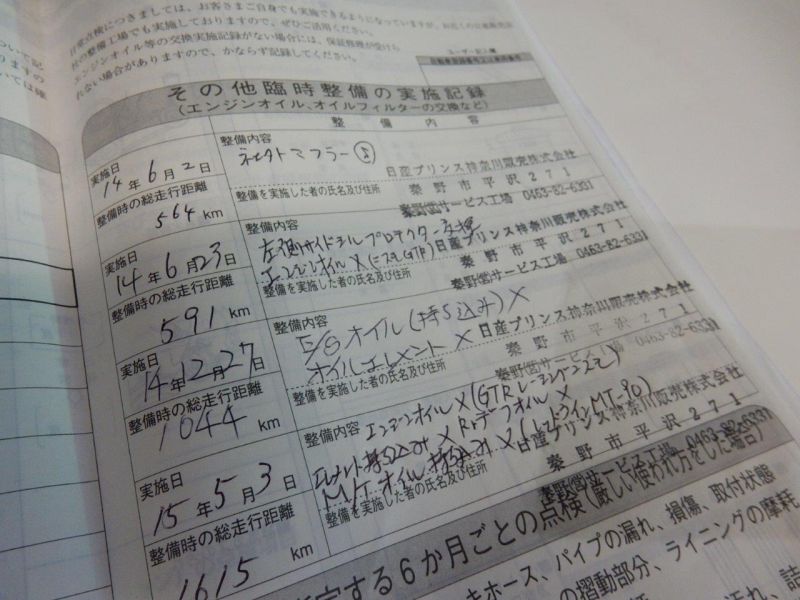 日常点検につきましては、お客さまご自身でも実施できるようになっていますが、お近くの
社の整備工場でも実施しておりますので、ぜひご活用ください。
エンジンオイル等の交換実施記録がない場合には、保証修理が受けら
れない場合がありますので、かならず記録してください。
ユーザー記入欄
その他臨時整備の実施記録
(エンジンオイル、オイルフィルターの交換など)
整備内容
実施日
14年6月2日
整備時の総走行距離
564 km
整備内容
マフラー
日産プリンス神奈川販売株式会社
整備を実施した者の氏名及び住所
秦野市平沢271
秦野サービス工場 0463-82-6331
実施日
14年6月23日
整備時の総走行距離
591 km
整備内容
左側サイドシルプロテクター交換
エンジンオイル X (ニスモGTR)
日産プリンス神奈川販売株式会社
整備を実施した者の氏名及び住所
秦野市平沢271
秦野サービス工場 0463-82-6331
実施日
14年12月27日
整備時の総走行距離
1044 km
整備内容
E/Gオイル(持ち込み) X
オイルエレメント X
日産プリンス神奈川販売株式会社
整備を実施した者の氏名及び住所
秦野市平沢271
秦野サービス工場 0463-82-6331
実施日
15年5月3日
整備時の総走行距離
1615 km
整備内容
エンジンオイル X (GTR
エレメント持込み X Rrデフオイル X
M/Tオイル持込み X (レッドラインMT-90)
日産プリンス神奈川販売株式会社
整備を実施した者の氏名及び住所
秦野市平沢271
秦野サービス工場 0463-82-6331
する6か月ごとの点検(厳しい使われ方をした場合)
キホース、パイプの漏れ、損傷、取付状態
の摺動部分、ライニングの摩耗